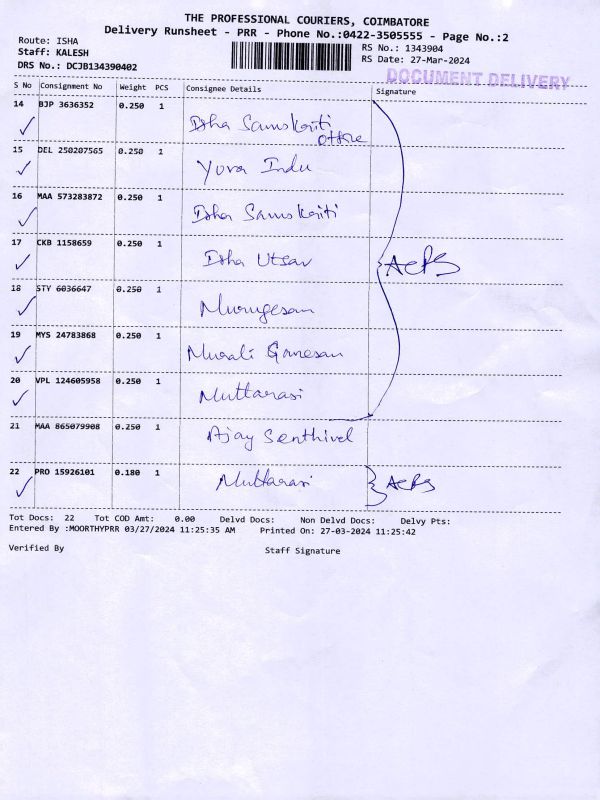 THE PROFESSIONAL COURIERS, COIMBATORE
Delivery Runsheet - PRR - Phone No.:0422-3505555 - Page No.:2
Route: ISHA
Staff: KALESH
DRS No.: DCJB134390402
RS No.: 1343904
RS Date: 27-Mar-2024
DOCUMENT DELIVERY
S No Consignment No Weight PCS Consignee Details Signature
14 BJP 3636352 0.250 1 Isha Samskriti
Office
15 DEL 250207565 0.250 1 Yuva Indu
16 MAA 573283872 0.250 1 Isha Samskriti
17 CKB 1158659 0.250 1 Isha Utsav
18 STY 6036647 0.250 1 Murugesan
19 MYS 24783868 0.250 1 Murali Ganesan
20 VPL 124605958 0.250 1 Muttarasi
21 MAA 865079908 0.250 1 Ajay Senthivel
22 PRO 15926101 0.180 1 Muttarasi
Tot Docs: 22 Tot COD Amt: 0.00 Delvd Docs: Non Delvd Docs: Delvy Pts:
Entered By :MOORTHYPRR 03/27/2024 11:25:35 AM Printed On: 27-03-2024 11:25:42
Verified By Staff Signature